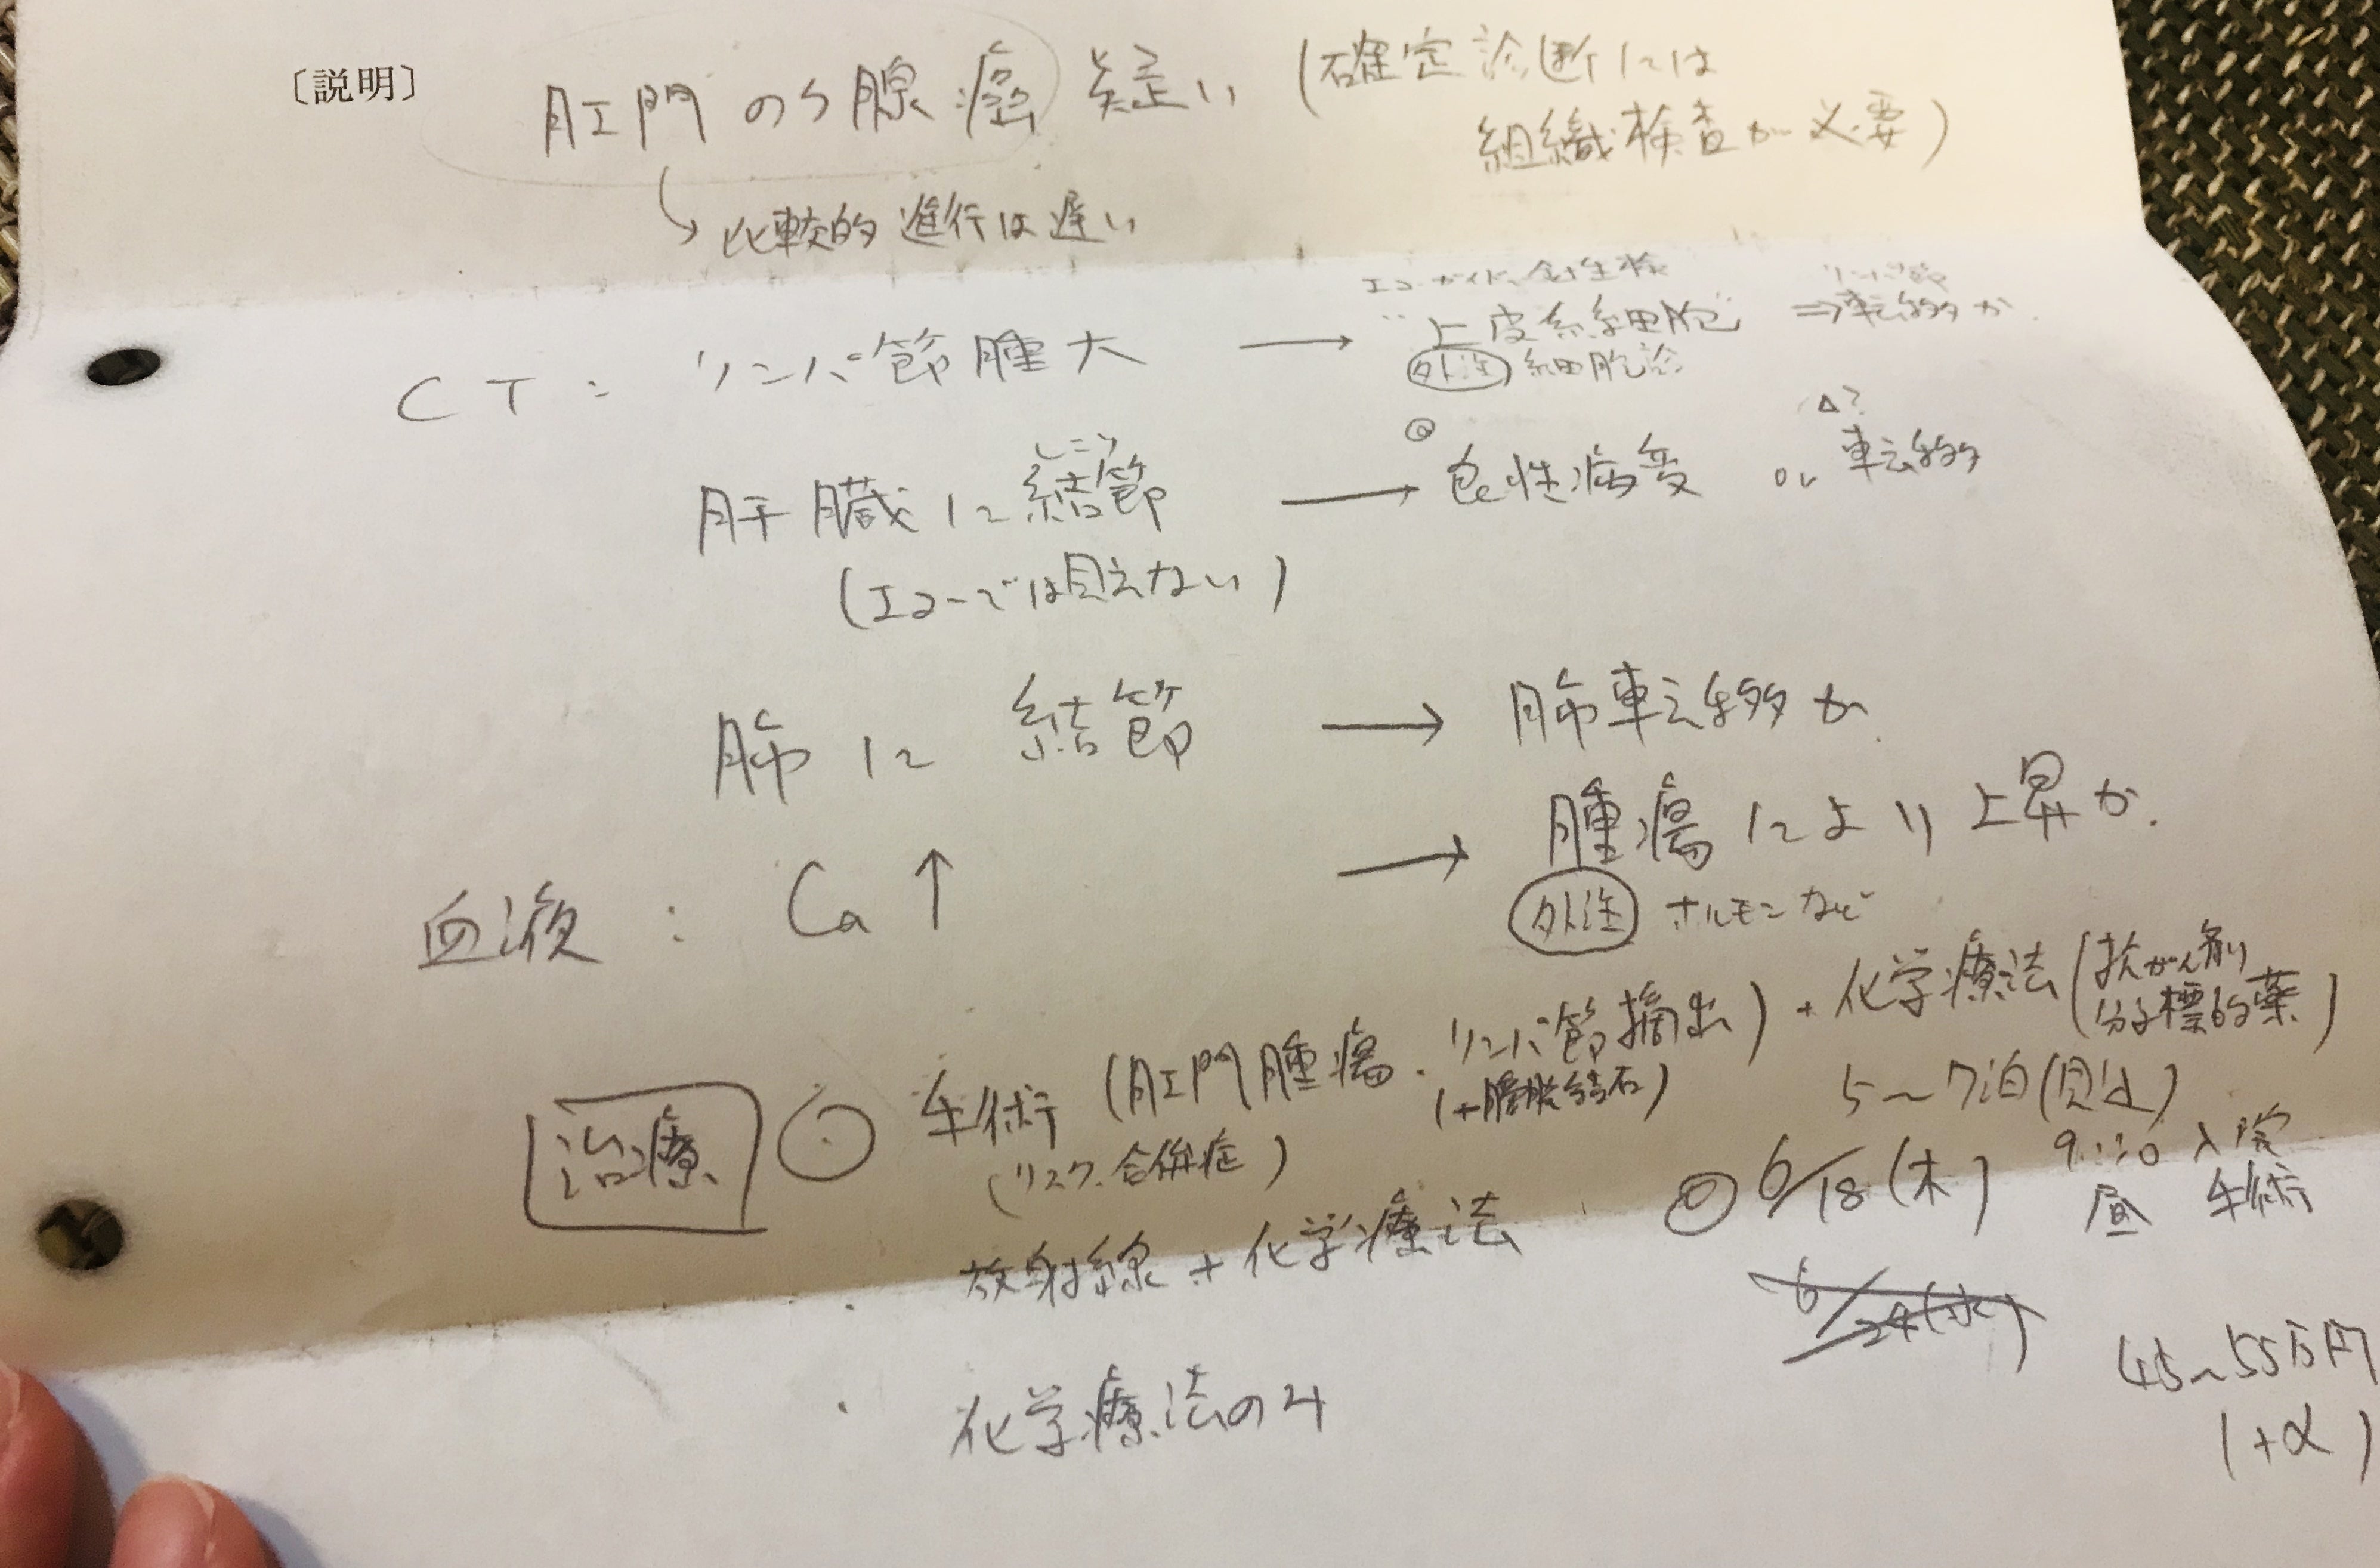 〔説明〕 肛門のう腺癌 疑い (確定診断には
組織検査が必要)
比較的 進行は遅い
エコーガイド 針生検
CT: リンパ節腫大 → 上皮系細胞 ⇒ 転移か
リンパ節
外注 細胞診
しこり
肝臓に結節 → 良性病変 or 転移
△?
(エコーでは見えない)
肺に 結節 → 肺転移か.
血液: Ca↑ → 腫瘍により上昇か.
外注 ホルモンなど
治療 手術 (肛門腫瘍・リンパ節摘出) + 化学療法 (抗がん剤
分子標的薬)
(+膀胱結石)
(リスク. 合併症)
5〜7泊(見込)
◎ 6/18(木) 9:30 入院
昼 手術
・ 放射線+化学療法
6/24(水)
・ 化学療法のみ
45〜55万円
(+α)